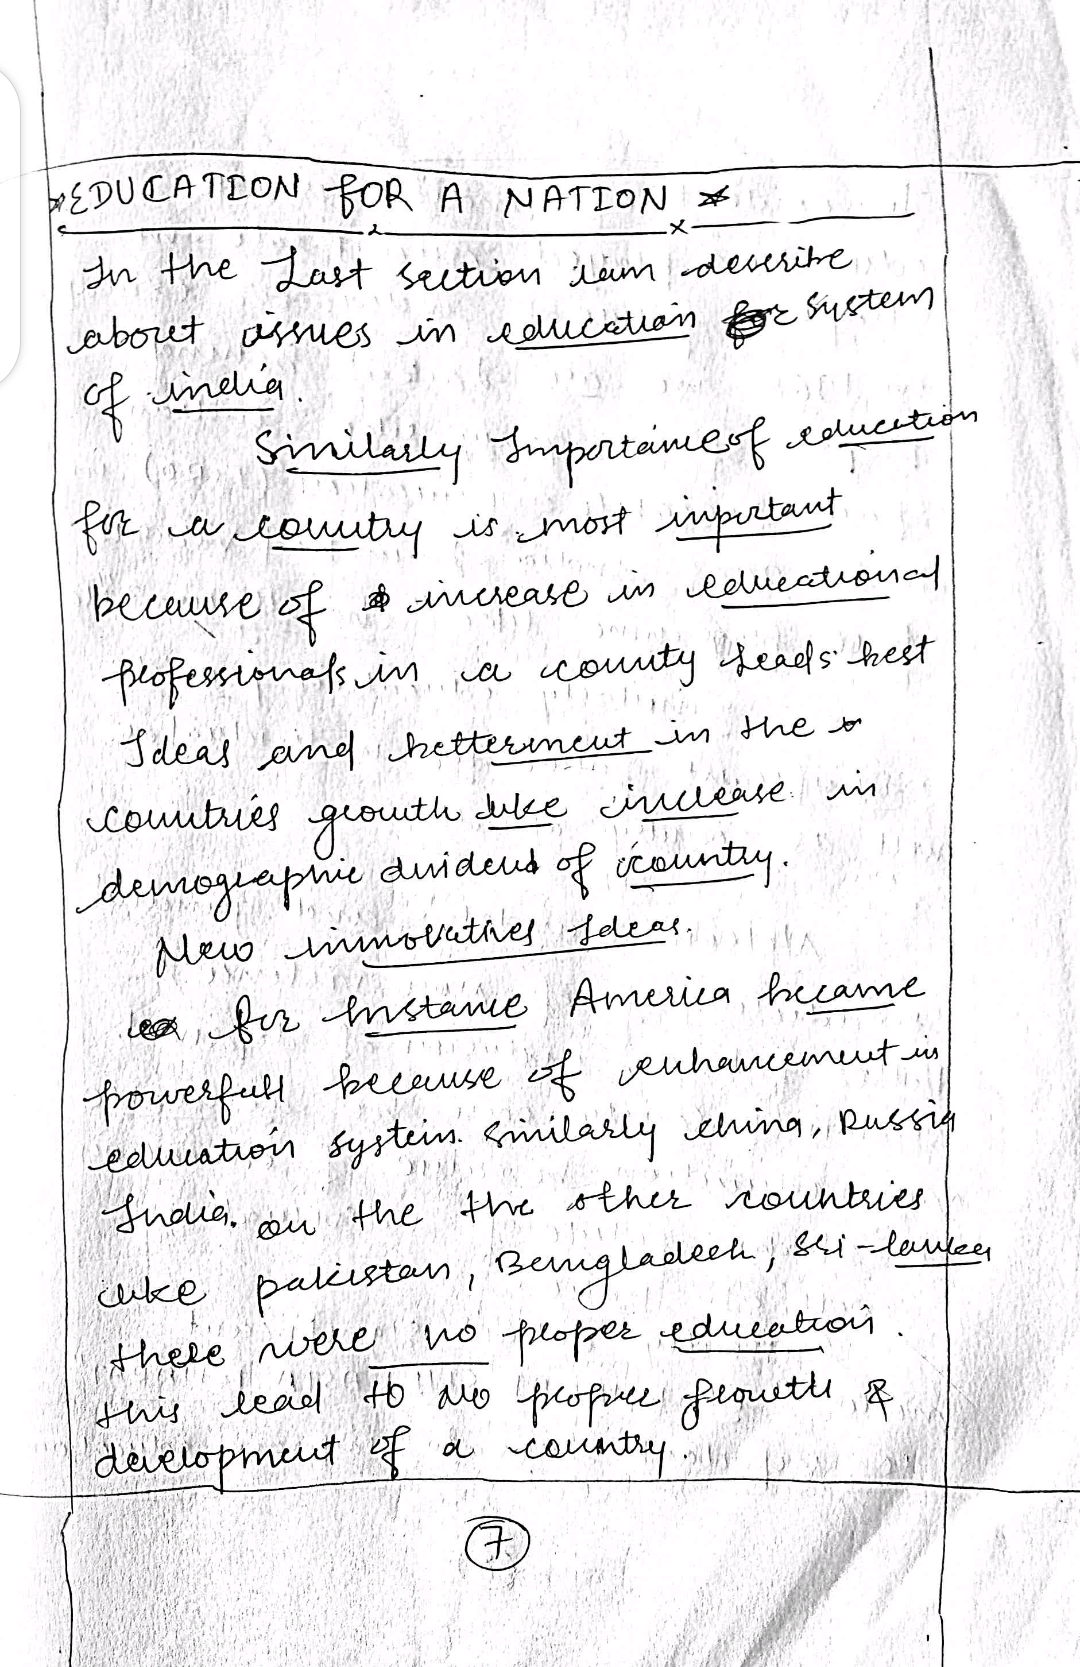 * EDUCATION FOR A NATION *
In the Last section iam describe
about issues in education system
of india.
Similarly Importance of education
for a country is most inportant
because of increase in educational
professionals in a county leads best
Ideas and betterment in the
countries growth like increase in
demographic dividend of country.
New innovatives Ideas.
for Instance America became
powerfull because of enhancement in
education system. Similarly china, Russia
India. on the the other countries
like pakistan, Bengladesh, Sri-lanka
there were no proper education.
this lead to no proper growth &
development of a country.
7